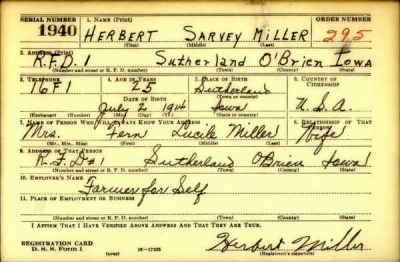 SERIAL NUMBER 1. NAME (Print) ORDER NUMBER
1940 HERBERT SARVEY MILLER 295
(First) (Middle) (Last)
2. ADDRESS (Print)
R.F.D. 1 Sutherland O'Brien Iowa
(Number and street or R. F. D. number) (Town) (County) (State)
3. TELEPHONE 4. AGE IN YEARS 5. PLACE OF BIRTH 6. COUNTRY OF CITIZENSHIP
16F1 25 Sutherland
(Town or county)
DATE OF BIRTH
July 2 1914 Iowa U.S.A.
(Exchange) (Number) (Mo.) (Day) (Yr.) (State or country)
7. NAME OF PERSON WHO WILL ALWAYS KNOW YOUR ADDRESS 8. RELATIONSHIP OF THAT PERSON
Mrs. Fern Lucile Miller Wife
(Mr., Mrs., Miss) (First) (Middle) (Last)
9. ADDRESS OF THAT PERSON
R.F.D#1 Sutherland OBrien Iowa
(Number and street or R. F. D. number) (Town) (County) (State)
10. EMPLOYER'S NAME
Farmer for Self
11. PLACE OF EMPLOYMENT OR BUSINESS
(Number and street or R. F. D. number) (Town) (County) (State)
I AFFIRM THAT I HAVE VERIFIED ABOVE ANSWERS AND THAT THEY ARE TRUE.
REGISTRATION CARD
D. S. S. Form 1 (over) 16—17105 Herbert Miller
(Registrant's signature)